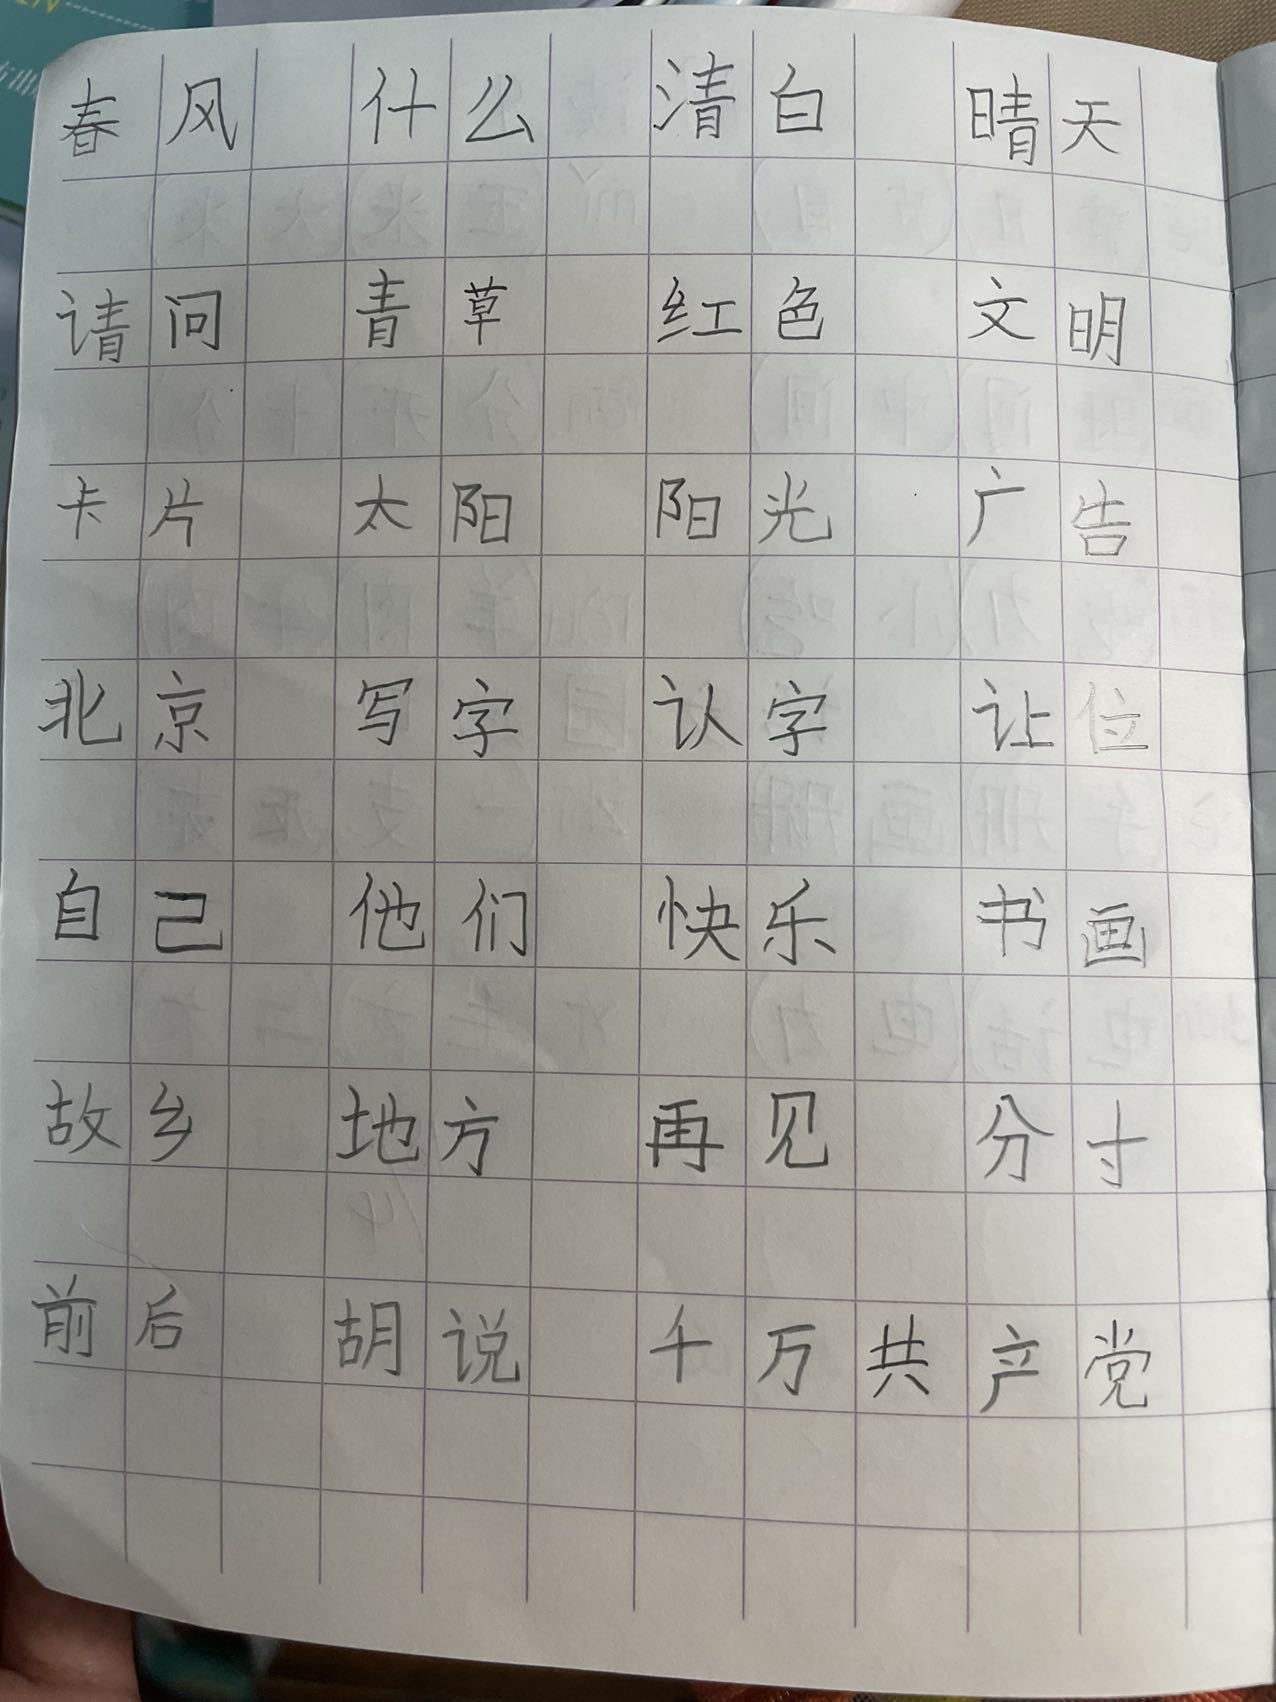 春风 什么 清白 晴天
请问 青草 红色 文明
卡片 太阳 阳光 广告
北京 写字 认字 让位
自己 他们 快乐 书画
故乡 地方 再见 分寸
前后 胡说 千万 共产党